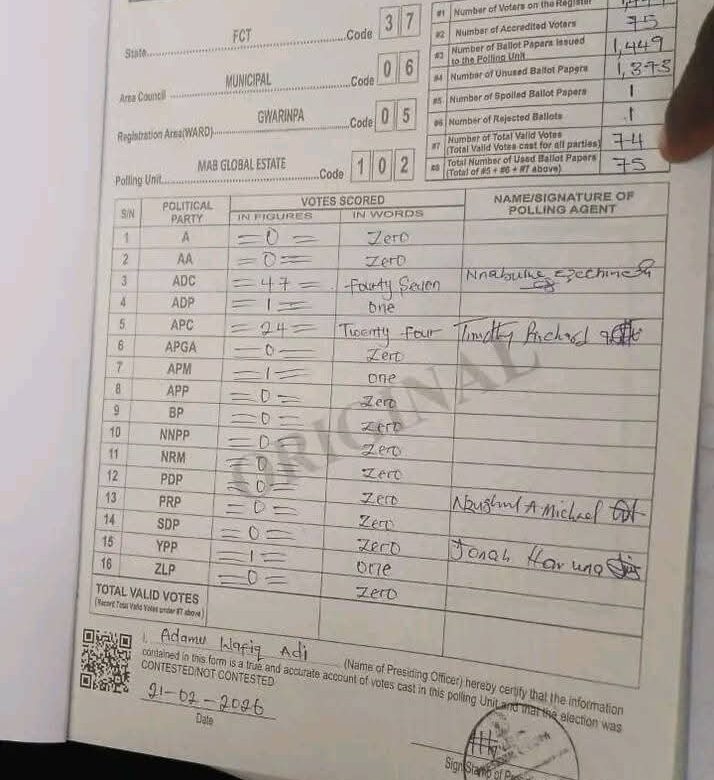 State FCT Code 3 7
Area Council MUNICIPAL Code 0 6
Registration Area(WARD) GWARINPA Code 0 5
Polling Unit MAB GLOBAL ESTATE Code 1 0 2
#1 Number of Voters on the Register
#2 Number of Accredited Voters 75
#3 Number of Ballot Papers Issued to the Polling Unit 1,449
#4 Number of Unused Ballot Papers 1,373
#5 Number of Spoiled Ballot Papers 1
#6 Number of Rejected Ballots 1
#7 Number of Total Valid Votes (Total Valid Votes cast for all parties) 74
#8 Total Number of Used Ballot Papers (Total of #5 + #6 + #7 above) 75
S/N POLITICAL PARTY VOTES SCORED NAME/SIGNATURE OF POLLING AGENT
IN FIGURES IN WORDS
1 A =0= Zero
2 AA =0= Zero
3 ADC =47= Fourty Seven
4 ADP =1= one
5 APC =24= Twenty Four Timothy Richard
6 APGA =0= Zero
7 APM =1= one
8 APP =0= Zero
9 BP =0= Zero
10 NNPP =0= Zero
11 NRM =0= Zero
12 PDP =0= Zero A Michael
13 PRP =0= Zero
14 SDP =0= Zero Jonah Haruna
15 YPP =1= one
16 ZLP =0= Zero
TOTAL VALID VOTES
(Record Total Valid Votes under #7 above)
ORIGINAL
I, Adamu Wafiq Adi (Name of Presiding Officer) hereby certify that the information
contained in this form is a true and accurate account of votes cast in this polling Unit and that the election was
CONTESTED/NOT CONTESTED
21-02-2026
Date
Sign/Stamp of